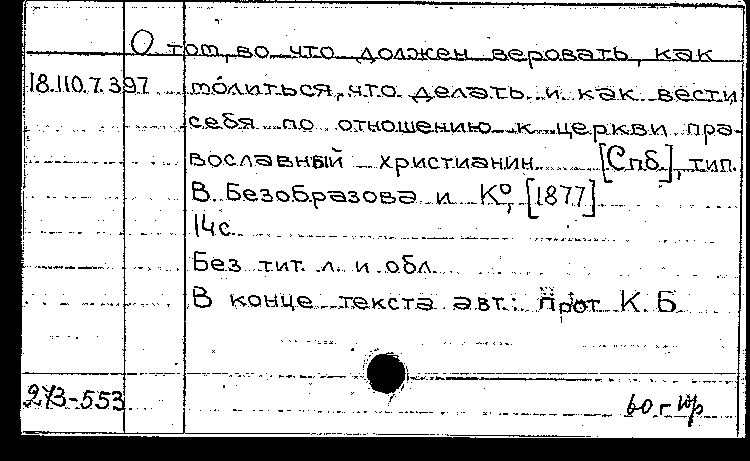 О том, во что должен веровать, как
18.110.7.397 молиться, что делать и как вести
себя по отношению к церкви пра-
вославный христианин. [Спб.], тип.
В. Безобразова и К°, [1877].
14с.
Без тит. л. и обл.
В конце текста авт.: прот. К. Б.
273-553
60 г